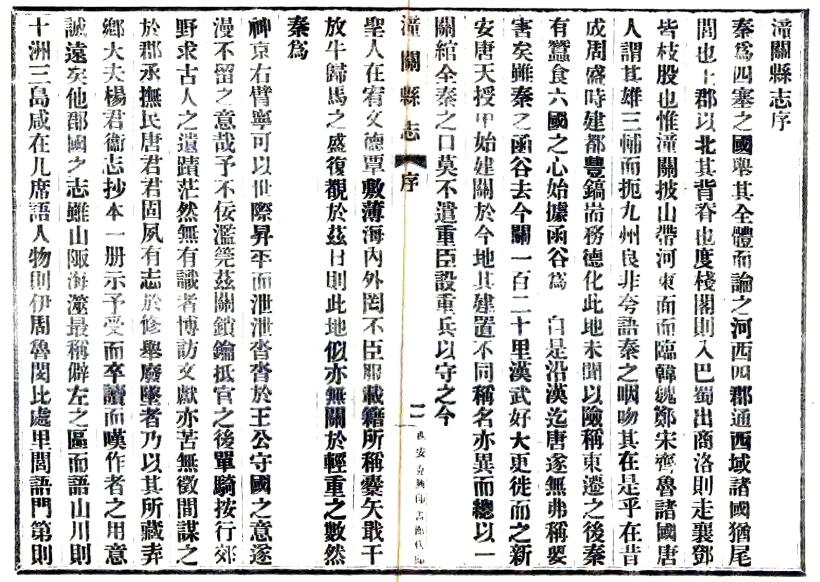 潼關縣志序
秦爲四塞之國舉其全體而論之河西四郡通西域諸國猶尾
閭也上郡以北其背脊也度棧閣則入巴蜀出商洛則走襄鄧
皆枝股也惟潼關披山帶河東面而臨韓魏鄭宋齊魯諸國唐
人謂其雄三輔而扼九州良非夸語秦之咽吻其在是乎在昔
成周盛時建都豐鎬耑務德化此地未聞以險稱東遷之後秦
有蠶食六國之心始據函谷爲 自是沿漢迄唐遂無弗稱要
害矣雖秦之函谷去今關一百二十里漢武好大更徙而之新
安唐天授中始建關於今地其建置不同稱名亦異而總以一
關綰全秦之口莫不遣重臣設重兵以守之今
潼關縣志 序 二 西安克興印書館代印
聖人在宥文德覃敷薄海內外罔不臣服載籍所稱櫜矢戢干
放牛歸馬之盛復覩於茲日則此地似亦無關於輕重之數然
秦爲
神京右臂寧可以世際昇平而泄泄沓沓於王公守國之意遂
漫不留之意哉予不佞濫筦茲關鎖鑰抵官之後單騎按行郊
野求古人之遺蹟茫然無有識者博訪文獻亦苦無徵間謀之
於郡丞撫民唐君君固夙有志於修舉廢墜者乃以其所藏弆
鄉大夫楊君衞志抄本一册示予受而卒讀而嘆作者之用意
誠遠矣他郡國之志雖山陬海澨最稱僻左之區而語山川則
十洲三島咸在几席語人物則伊周魯閔比處里閭語門第則